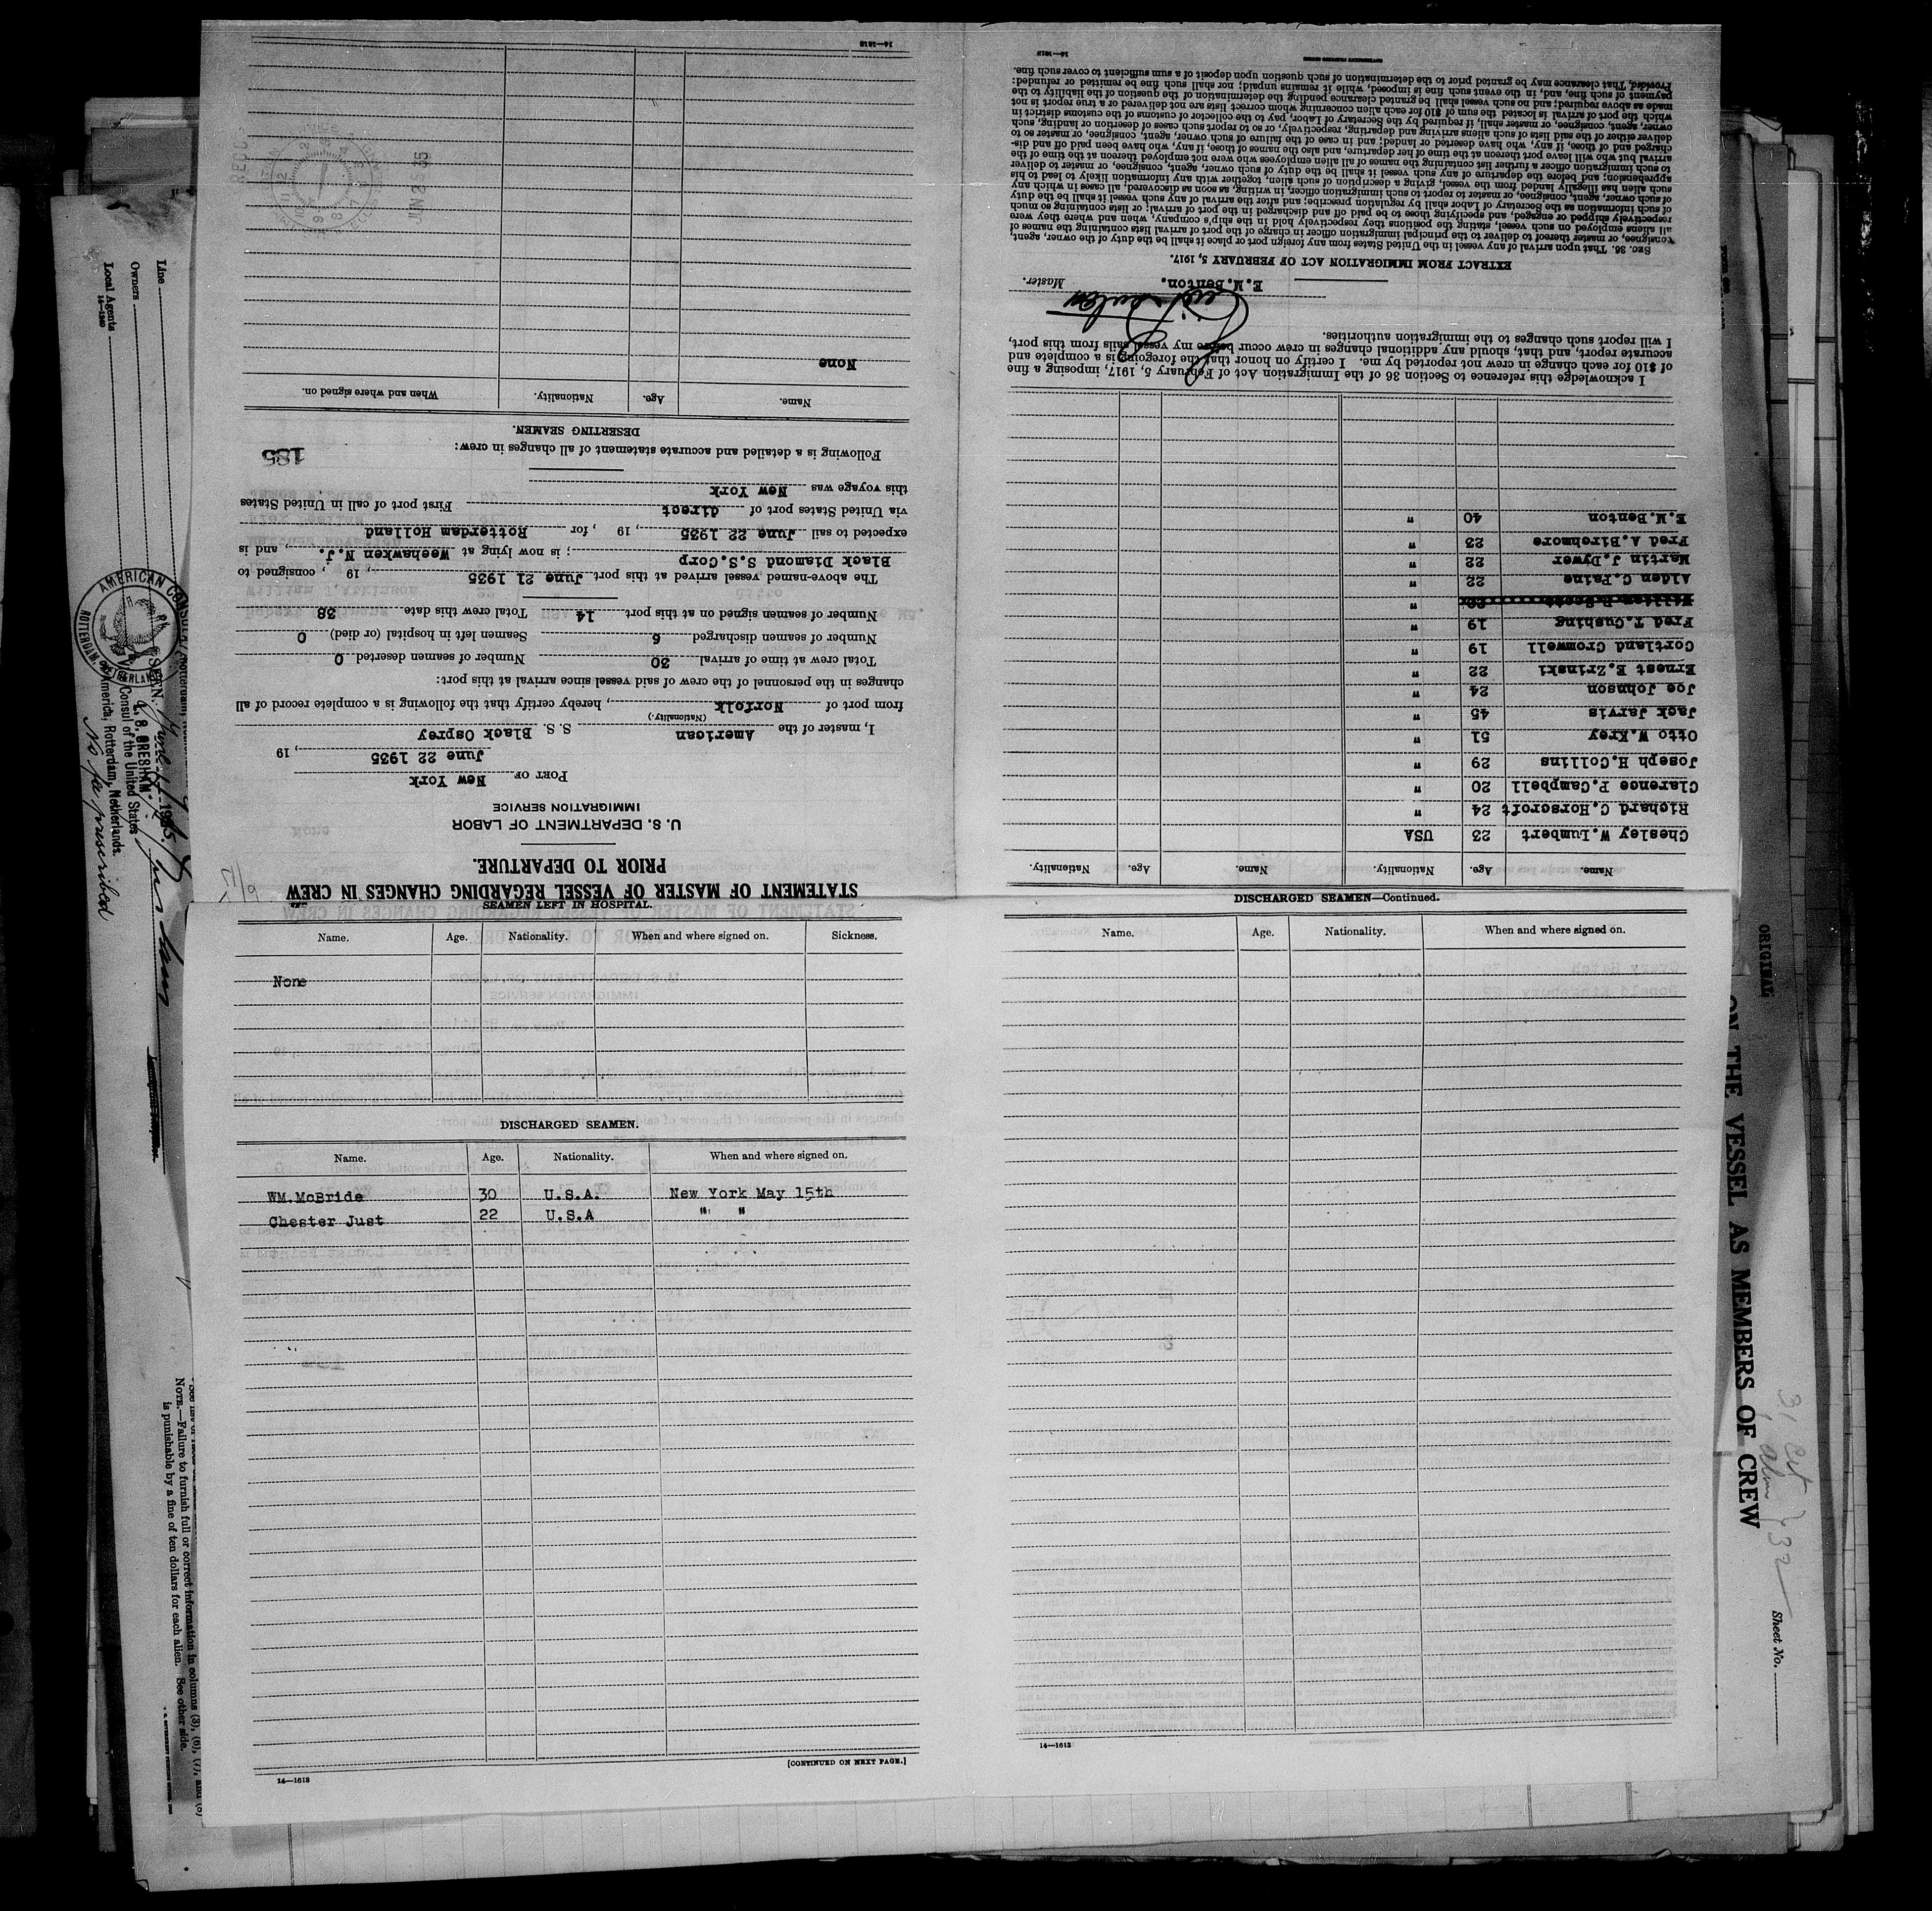 STATEMENT OF MASTER OF VESSEL REGARDING CHANGES IN CREW
PRIOR TO DEPARTURE.
U. S. DEPARTMENT OF LABOR
IMMIGRATION SERVICE
PORT OF New York
June 22 1935, 19
I, master of the American S. S. Black Osprey
(Nationality.)
from port of Norfolk, hereby certify that the following is a complete record of all
changes in the personnel of the crew of said vessel since arrival at this port:
Total crew at time of arrival 30 Number of seamen deserted 0
Number of seamen discharged 6 Seamen left in hospital (or died) 0
Number of seamen signed on at this port 14 Total crew this date 38
The above-named vessel arrived at this port June 21 1935, 19 , consigned to
Black Diamond S.S.Corp; is now lying at Weehawken N.J., and is
expected to sail June 22 1935, 19 , for Rotterdam Holland
via United States port of direct First port of call in United States
this voyage was New York
Following is a detailed and accurate statement of all changes in crew:
185
DESERTING SEAMEN.
Name. Age. Nationality. When and where signed on.
None
JUN 25 35
14—1613
Name. Age. Nationality. Name. Age. Nationality.
Chesley W.Lumbert 23 USA
Richard C.Horscroft 24 "
Clarence P.Campbell 20 "
Joseph H.Collins 29 "
Otto W.Krey 51 "
Jack Jarvis 45 "
Joe Johnson 24 "
Ernest E.Zrinski 22 "
Cortland Cromwell 19 "
Fred T.Cushing 19 "
"
Alden C.Paine 22 "
Martin J.Dwyer 22 "
Fred A.Birchmore 23 "
E.M.Benton 40 "
I acknowledge this reference to Section 36 of the Immigration Act of February 5, 1917, imposing a fine
of $10 for each change in crew not reported by me. I certify on honor that the foregoing is a complete and
accurate report, and that, should any additional changes in crew occur before my vessel sails from this port,
I will report such changes to the immigration authorities.
E.M.Benton. Master.
EXTRACT FROM IMMIGRATION ACT OF FEBRUARY 5, 1917.
SEC. 36. That upon arrival of any vessel in the United States from any foreign port or place it shall be the duty of the owner, agent,
consignee, or master thereof to deliver to the principal immigration officer in charge of the port of arrival lists containing the names of
all aliens employed on such vessel, stating the positions they respectively hold in the ship's company, when and where they were
respectively shipped or engaged, and specifying those to be paid off and discharged in the port of arrival; or lists containing so much
of such information as the Secretary of Labor shall by regulation prescribe; and after the arrival of any such vessel it shall be the duty
of such owner, agent, consignee, or master to report to such immigration officer, in writing, as soon as discovered, all cases in which any
such alien has illegally landed from the vessel, giving a description of such alien, together with any information likely to lead to his
apprehension; and before the departure of any such vessel it shall be the duty of such owner, agent, consignee, or master to deliver
to such immigration officer a further list containing the names of all alien employees who were not employed thereon at the time of the
arrival but who will leave port thereon at the time of her departure, and also the names of those, if any, who have been paid off and dis-
charged and of those, if any, who have deserted or landed; and in case of the failure of such owner, agent, consignee, or master so to
deliver either of the said lists of such aliens arriving and departing, respectively, or so to report such cases of desertion or landing, such
owner, agent, consignee, or master shall, if required by the Secretary of Labor, pay to the collector of customs of the customs district in
which the port of arrival is located the sum of $10 for each alien concerning whom correct lists are not delivered or a true report is not
made as above required; and no such vessel shall be granted clearance pending the determination of the question of the liability to the
payment of such fine, and, in the event such fine is imposed, while it remains unpaid; nor shall such fine be remitted or refunded:
Provided, That clearance may be granted prior to the determination of such question upon deposit of a sum sufficient to cover such fine.
14—1613
SEAMEN LEFT IN HOSPITAL.
Name. Age. Nationality. When and where signed on. Sickness.
None
DISCHARGED SEAMEN.
Name. Age. Nationality. When and where signed on.
WM.McBride 30 U.S.A. New York May 15th
Chester Just 22 U.S.A " "
[CONTINUED ON NEXT PAGE.]
14—1613
DISCHARGED SEAMEN—Continued.
Name. Age. Nationality. When and where signed on.
14—1613
Line
Owners
Local Agents
14—1240
AMERICAN CONSUL
ROTTERDAM
Consul of the United States
America, Rotterdam, Netherlands.
No fee prescribed
NOTE.—Failure to furnish full or correct information in columns (3), (6), (7), and (8)
is punishable by a fine of ten dollars for each alien. See other side.
ORIGINAL
ON THE VESSEL AS MEMBERS OF CREW
Sheet No.
31
32